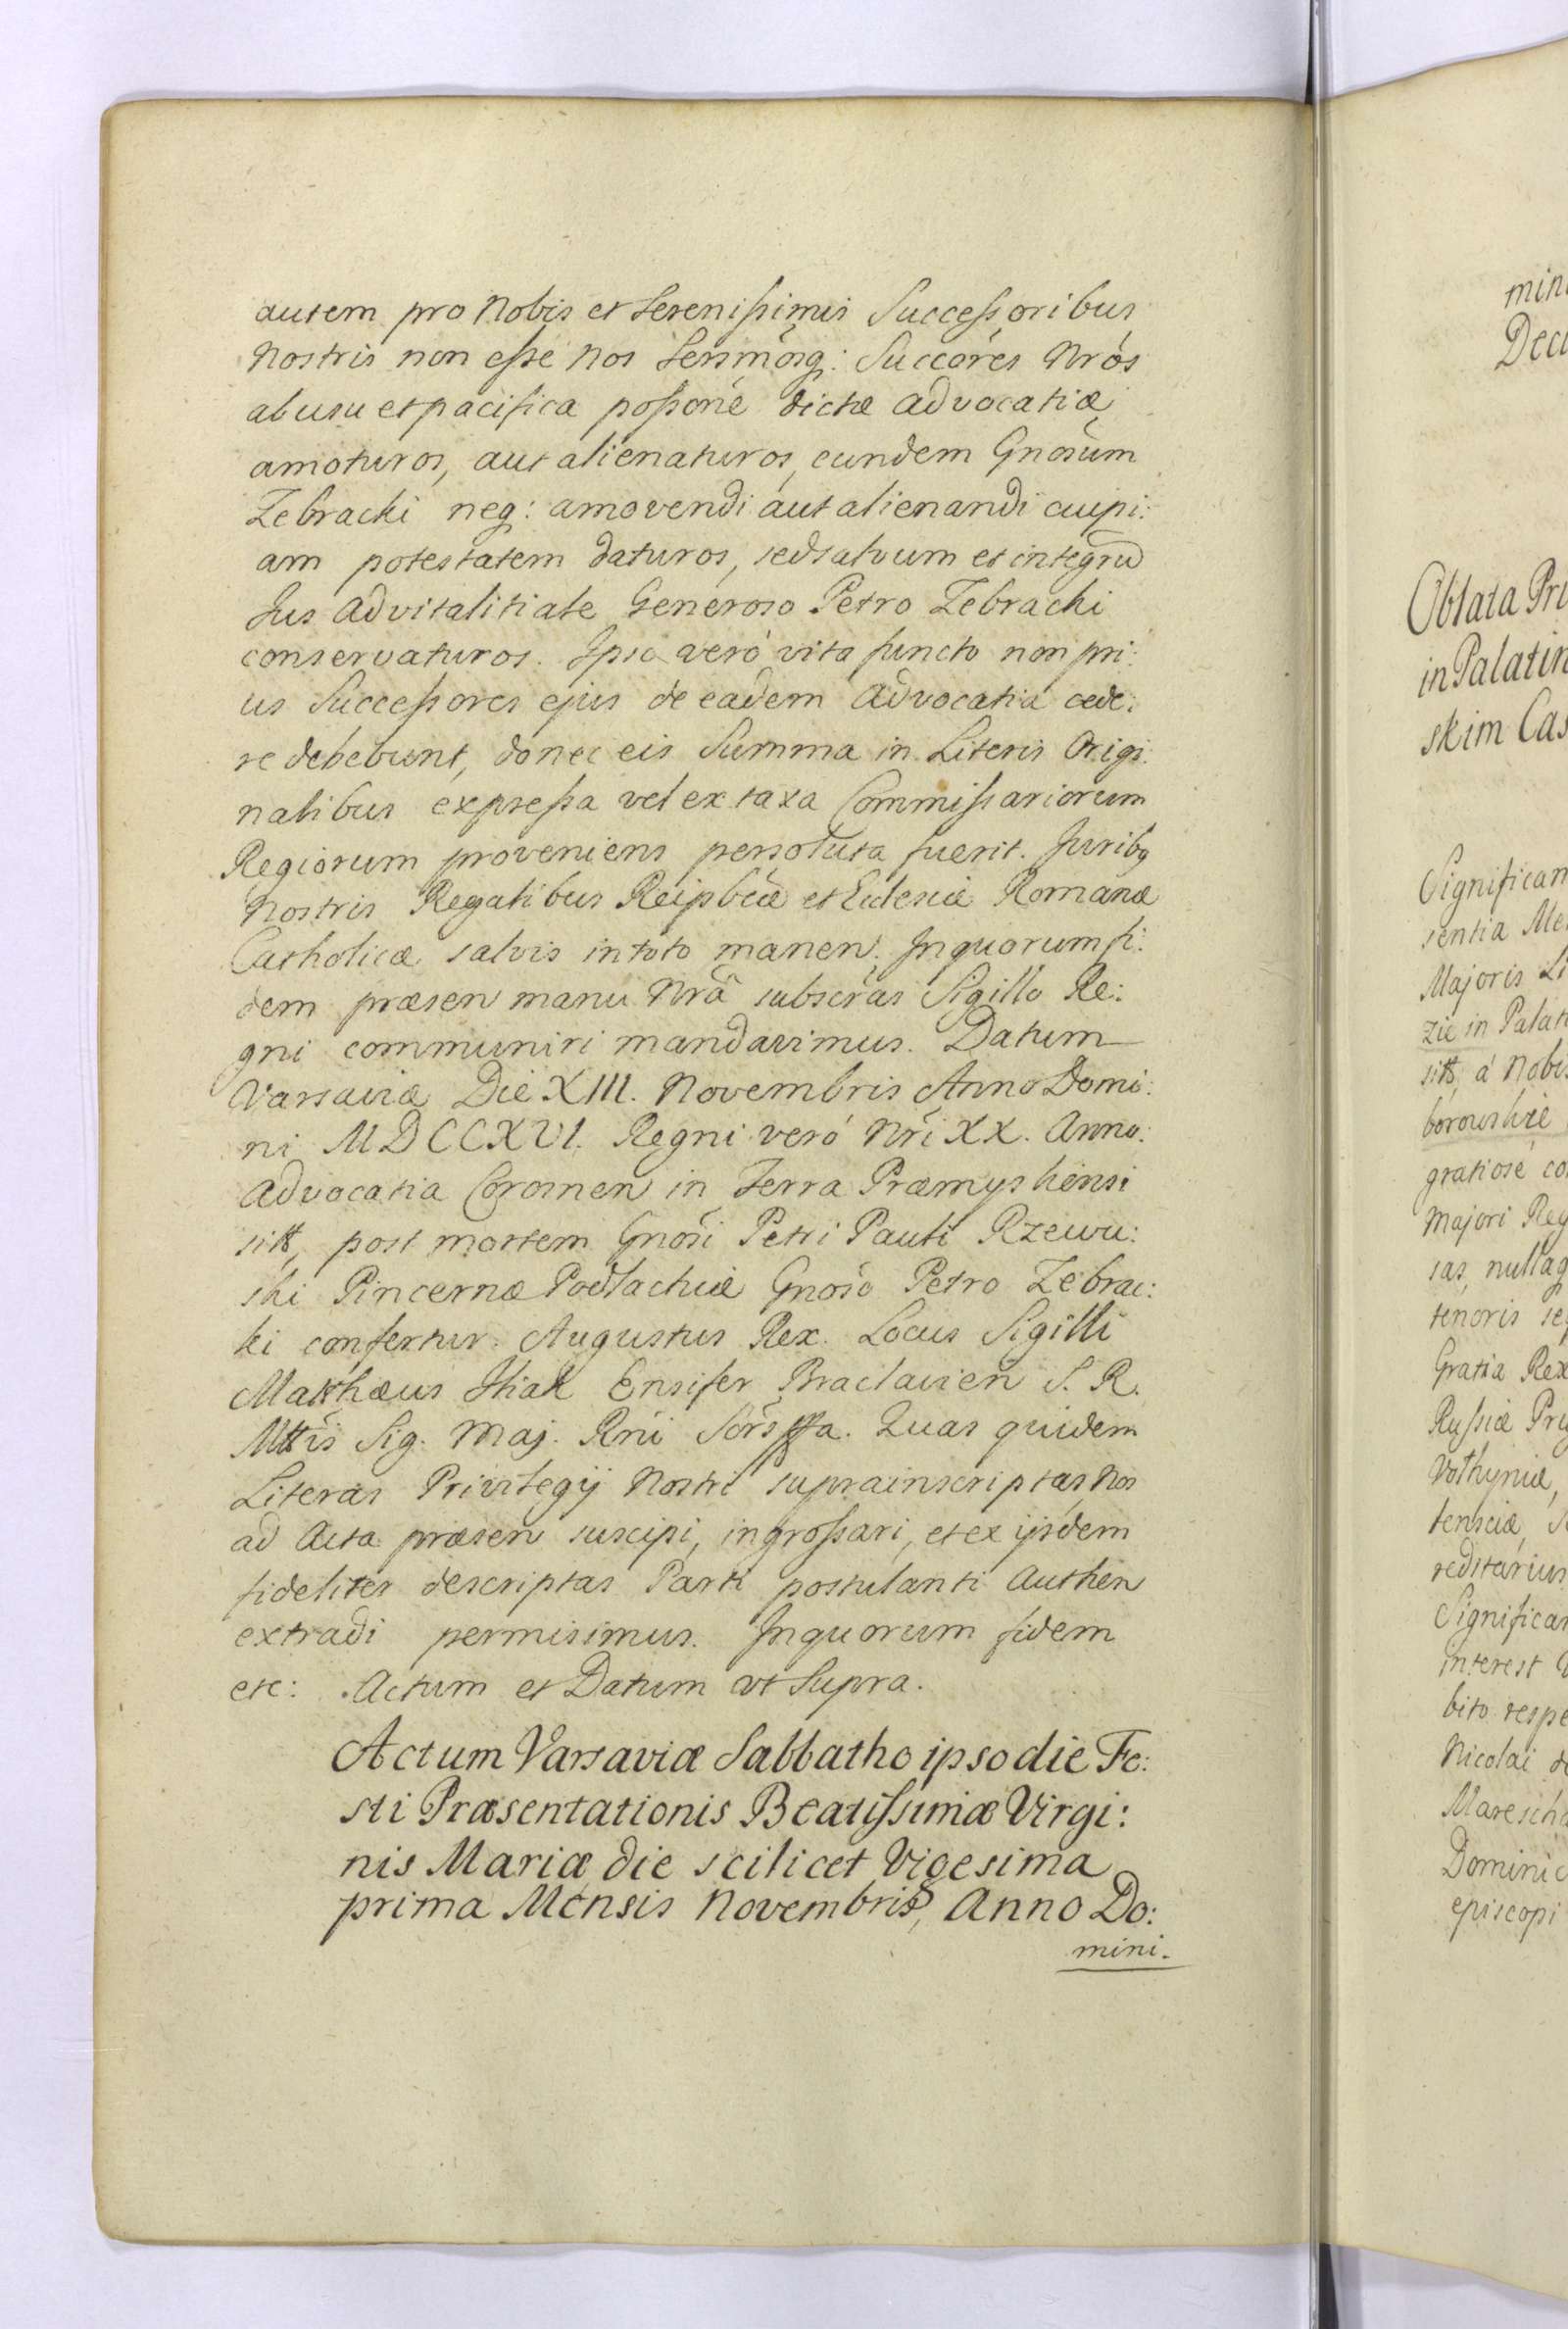 autem pro Nobis et Serenissimis Successoribus
Nostris non esse nos Sersmosq: Succores Nros
ab usu et pacifica possone dictæ Advocatiæ
amoturos, aut alienaturos, eundem Gnosum
Zebracki neq: amovendi aut alienandi cuipi:
am potestatem daturos, sed salvum et integrũ
Jus advitalitiale Generoso Petro Zebracki
conservaturos. Ipso veró vita functo non pri:
us Successores ejus de eadem Advocatia cede:
re debebunt, donec eis Summa in Literis Origi:
nalibus expressa vel ex taxa Commissariorum
Regiorum proveniens persoluta fuerit. Juribq
Nostris Regalibus Reipbcæ et Ecclesiæ Romanæ
Catholicæ salvis in toto manen. In quorum fi:
dem præsen manu Nrã subscras Sigillo Re:
gni communiri mandavimus. Datum
Varsaviæ Die XIII. Novembris Anno Domi:
ni MDCCXVI. Regni veró Nri XX. Anno.
Advocatia Crosnen in Terra Præmysliensi
sitt, post mortem Gnosi Petri Pauli Rzewu:
ski Pincernæ Podlachiæ Gnoso Petro Zebrac:
ki confertur. Augustus Rex. Locus Sigilli
Matthæus Ensifer Braclavien S. R.
Mttis Sig. Maj. Rni Sors ppa. Quas quidem
Literas Privilegij Nostri suprainscriptas, Nos
ad Acta præsen suscipi, ingrossari, et ex ijsdem
fideliter descriptas Parti postulanti Authen
extradi permisimus. In quorum fidem
etc: Actum et Datum ut Supra.
Actum Varsaviæ Sabbatho ipso die Fe:
sti Præsentationis Beatissimæ Virgi:
nis Mariæ, die scilicet Vigesima
prima Mensis Novembris, Anno Do:
mini.
min
Dec
Oblata Pri
in Palatin
skim Cas
Significam
sentia Me
Majoris Li
zie in Palat
sitt, á Nobis
borowskie
gratiosé co
Majori Reg
sas, nullaq
tenoris se
Gratia Rex
Russiæ Pru
Volhyniæ,
tensciæ, S
reditarius
Significam
interest
bito respe
Nicolai de
Marescha
Dominic
episcopi